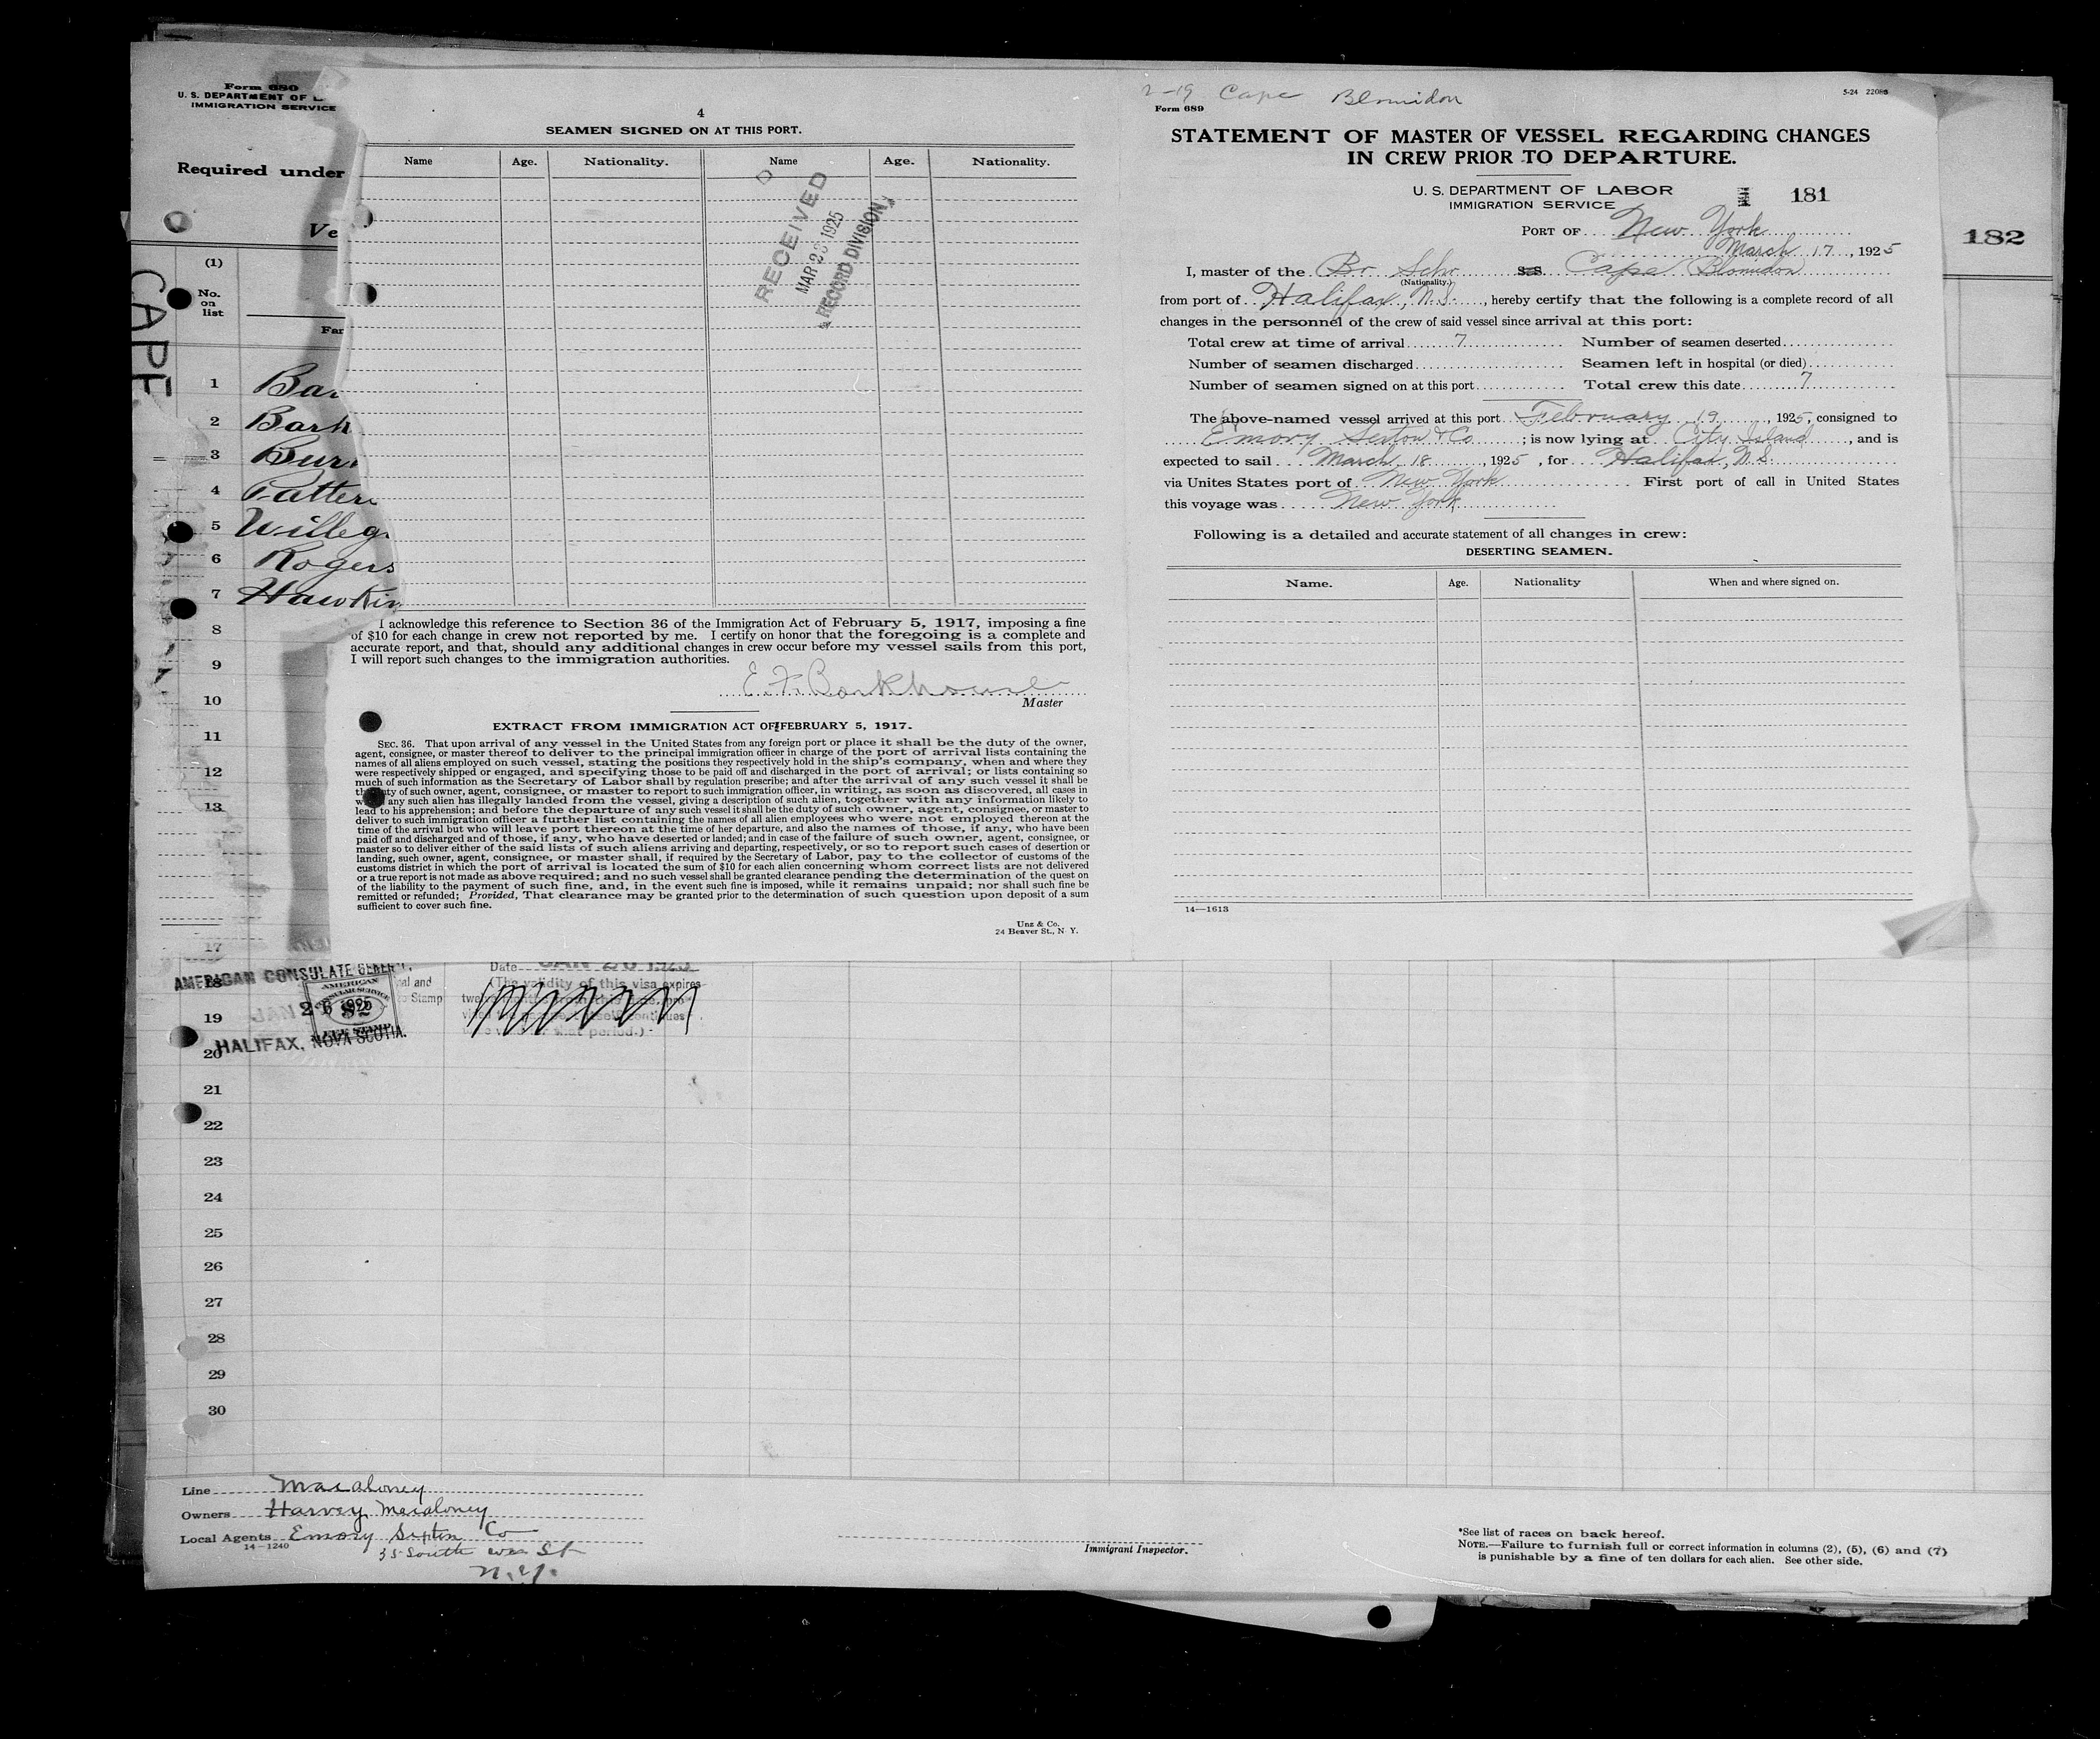 Form 680
U. S. DEPARTMENT OF L
IMMIGRATION SERVICE
Required under
Ve
(1)
No.
on
list
Far
CAPE
1 Bar
2 Bark
3 Bur
4 Patter
5 Willeg
6 Rogers
7 Hawkin
8
9
10
11
12
13
17
18
19
20
21
22
23
24
25
26
27
28
29
30
4
SEAMEN SIGNED ON AT THIS PORT.
Name Age. Nationality. Name Age. Nationality.
RECEIVED
MAR 23 1925
RECORD DIVISION
I acknowledge this reference to Section 36 of the Immigration Act of February 5, 1917, imposing a fine
of $10 for each change in crew not reported by me. I certify on honor that the foregoing is a complete and
accurate report, and that, should any additional changes in crew occur before my vessel sails from this port,
I will report such changes to the immigration authorities.
E. F. Barkhouse
Master
EXTRACT FROM IMMIGRATION ACT OF FEBRUARY 5, 1917.
SEC. 36. That upon arrival of any vessel in the United States from any foreign port or place it shall be the duty of the owner,
agent, consignee, or master thereof to deliver to the principal immigration officer in charge of the port of arrival lists containing the
names of all aliens employed on such vessel, stating the positions they respectively hold in the ship's company, when and where they
were respectively shipped or engaged, and specifying those to be paid off and discharged in the port of arrival; or lists containing so
much of such information as the Secretary of Labor shall by regulation prescribe; and after the arrival of any such vessel it shall be
the duty of such owner, agent, consignee, or master to report to such immigration officer, in writing, as soon as discovered, all cases in
w any such alien has illegally landed from the vessel, giving a description of such alien, together with any information likely to
lead to his apprehension; and before the departure of any such vessel it shall be the duty of such owner, agent, consignee, or master to
deliver to such immigration officer a further list containing the names of all alien employees who were not employed thereon at the
time of the arrival but who will leave port thereon at the time of her departure, and also the names of those, if any, who have been
paid off and discharged and of those, if any, who have deserted or landed; and in case of the failure of such owner, agent, consignee, or
master so to deliver either of the said lists of such aliens arriving and departing, respectively, or so to report such cases of desertion or
landing, such owner, agent, consignee, or master shall, if required by the Secretary of Labor, pay to the collector of customs of the
customs district in which the port of arrival is located the sum of $10 for each alien concerning whom correct lists are not delivered
or a true report is not made as above required; and no such vessel shall be granted clearance pending the determination of the quest on
of the liability to the payment of such fine, and, in the event such fine is imposed, while it remains unpaid; nor shall such fine be
remitted or refunded; Provided, That clearance may be granted prior to the determination of such question upon deposit of a sum
sufficient to cover such fine.
Unz & Co.
24 Beaver St., N. Y.
2-19 Cape Blomidon
Form 689
5-24 22086
STATEMENT OF MASTER OF VESSEL REGARDING CHANGES
IN CREW PRIOR TO DEPARTURE.
U. S. DEPARTMENT OF LABOR
IMMIGRATION SERVICE
181
PORT OF New York
March 17, 1925
I, master of the Br Schr S.S. Cape Blomidon
(Nationality.)
from port of Halifax, N.S., hereby certify that the following is a complete record of all
changes in the personnel of the crew of said vessel since arrival at this port:
Total crew at time of arrival 7 Number of seamen deserted
Number of seamen discharged Seamen left in hospital (or died)
Number of seamen signed on at this port Total crew this date 7
The above-named vessel arrived at this port February 19, 1925, consigned to
Emory Sexton & Co; is now lying at City Island, and is
expected to sail March 18, 1925, for Halifax, N.S.
via Unites States port of New York First port of call in United States
this voyage was New York
Following is a detailed and accurate statement of all changes in crew:
DESERTING SEAMEN.
Name. Age. Nationality When and where signed on.
14—1613
182
AMERICAN CONSULATE GENERAL
JAN 26 1925
HALIFAX, NOVA SCOTIA.
AMERICAN
CONSULAR SERVICE
val and
Stamp
Date JAN 26 1925
(The validity of this visa expires
period.)
Line Macaloney
Owners Harvey Macaloney
Local Agents Emory Sexton Co
14—1240
35 South St
N.Y.
Immigrant Inspector.
*See list of races on back hereof.
NOTE.—Failure to furnish full or correct information in columns (2), (5), (6) and (7)
is punishable by a fine of ten dollars for each alien. See other side.